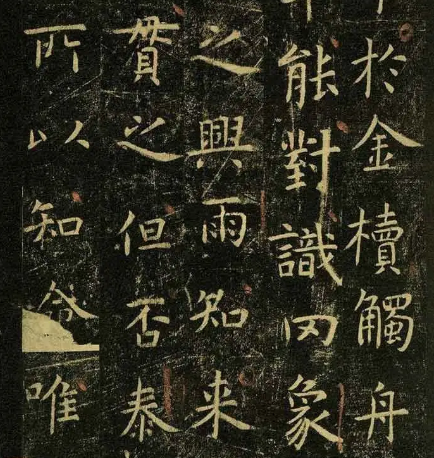 於金櫝觸舟
能對識罔象
之興雨知来
貫之但否泰
所以知命唯